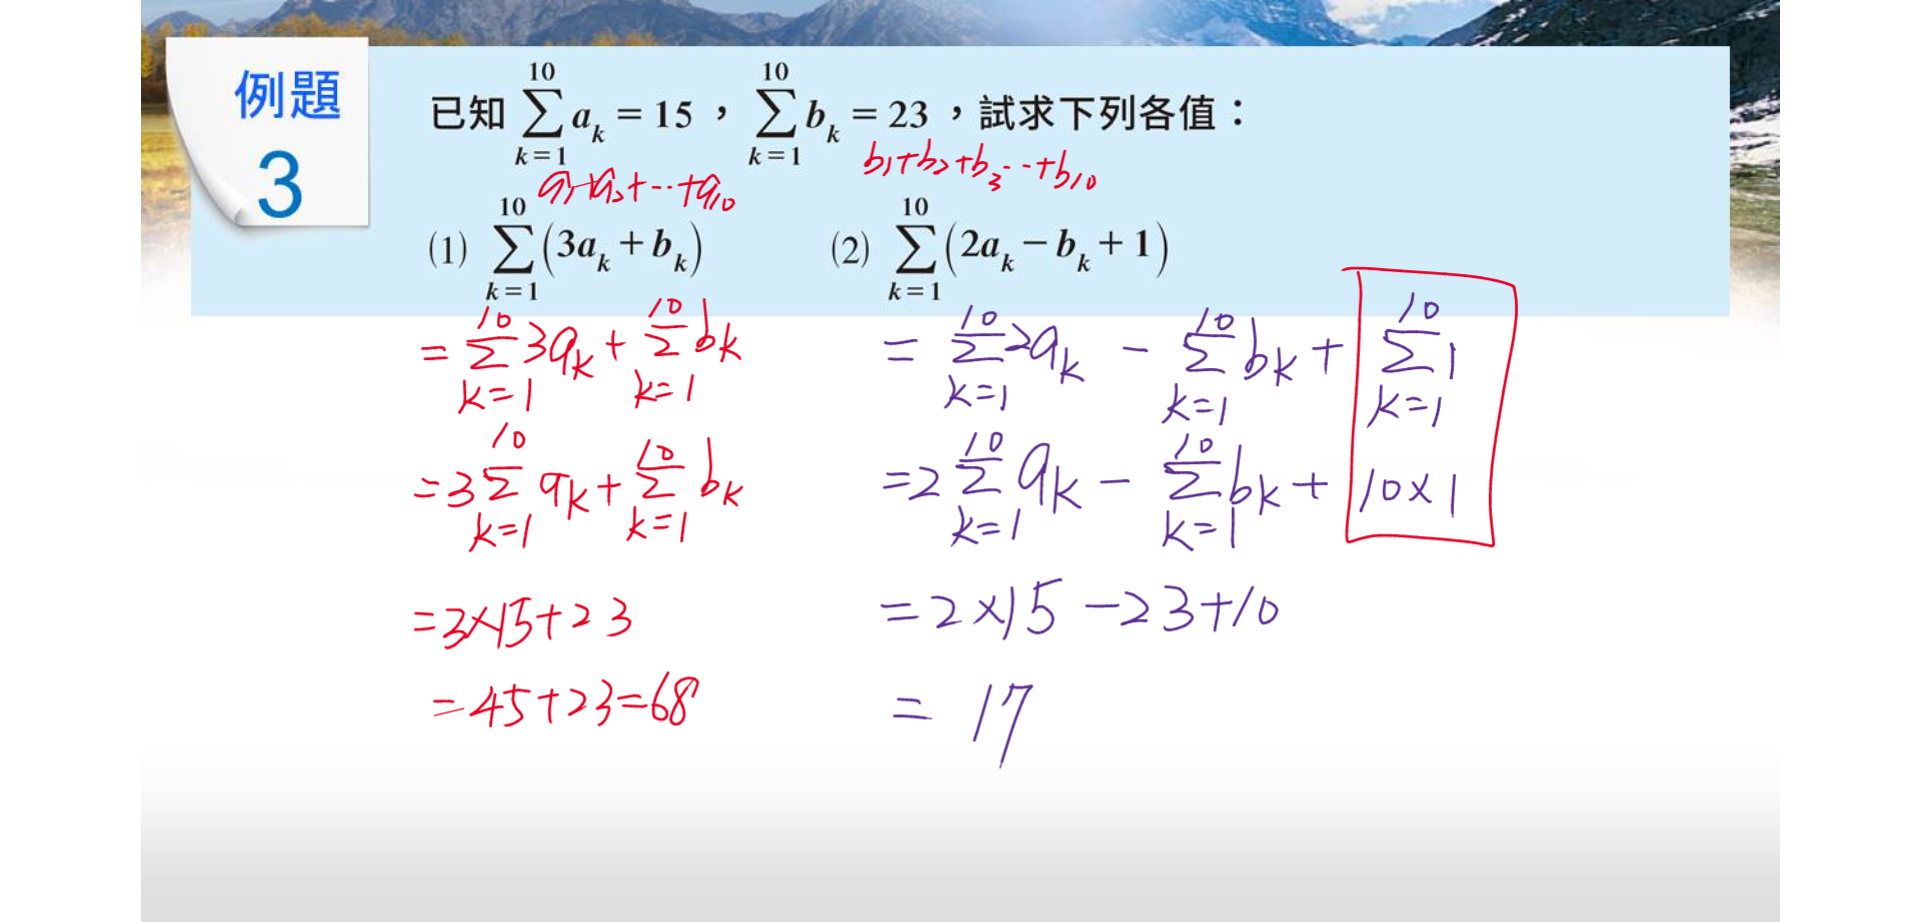 例題
3
已知 $\sum_{k=1}^{10} a_k = 15$ ，$\sum_{k=1}^{10} b_k = 23$ ，試求下列各值：
a₁+a₂+⋯+a₁₀
b₁+b₂+b₃⋯+b₁₀
(1) $\sum_{k=1}^{10} (3a_k + b_k)$
(2) $\sum_{k=1}^{10} (2a_k - b_k + 1)$
= $\sum_{k=1}^{10} 3a_k + \sum_{k=1}^{10} b_k$
= $3\sum_{k=1}^{10} a_k + \sum_{k=1}^{10} b_k$
=3×15+23
=45+23=68
= $\sum_{k=1}^{10} 2a_k - \sum_{k=1}^{10} b_k + \sum_{k=1}^{10} 1$
= $2\sum_{k=1}^{10} a_k - \sum_{k=1}^{10} b_k + 10×1$
=2×15-23+10
= 17